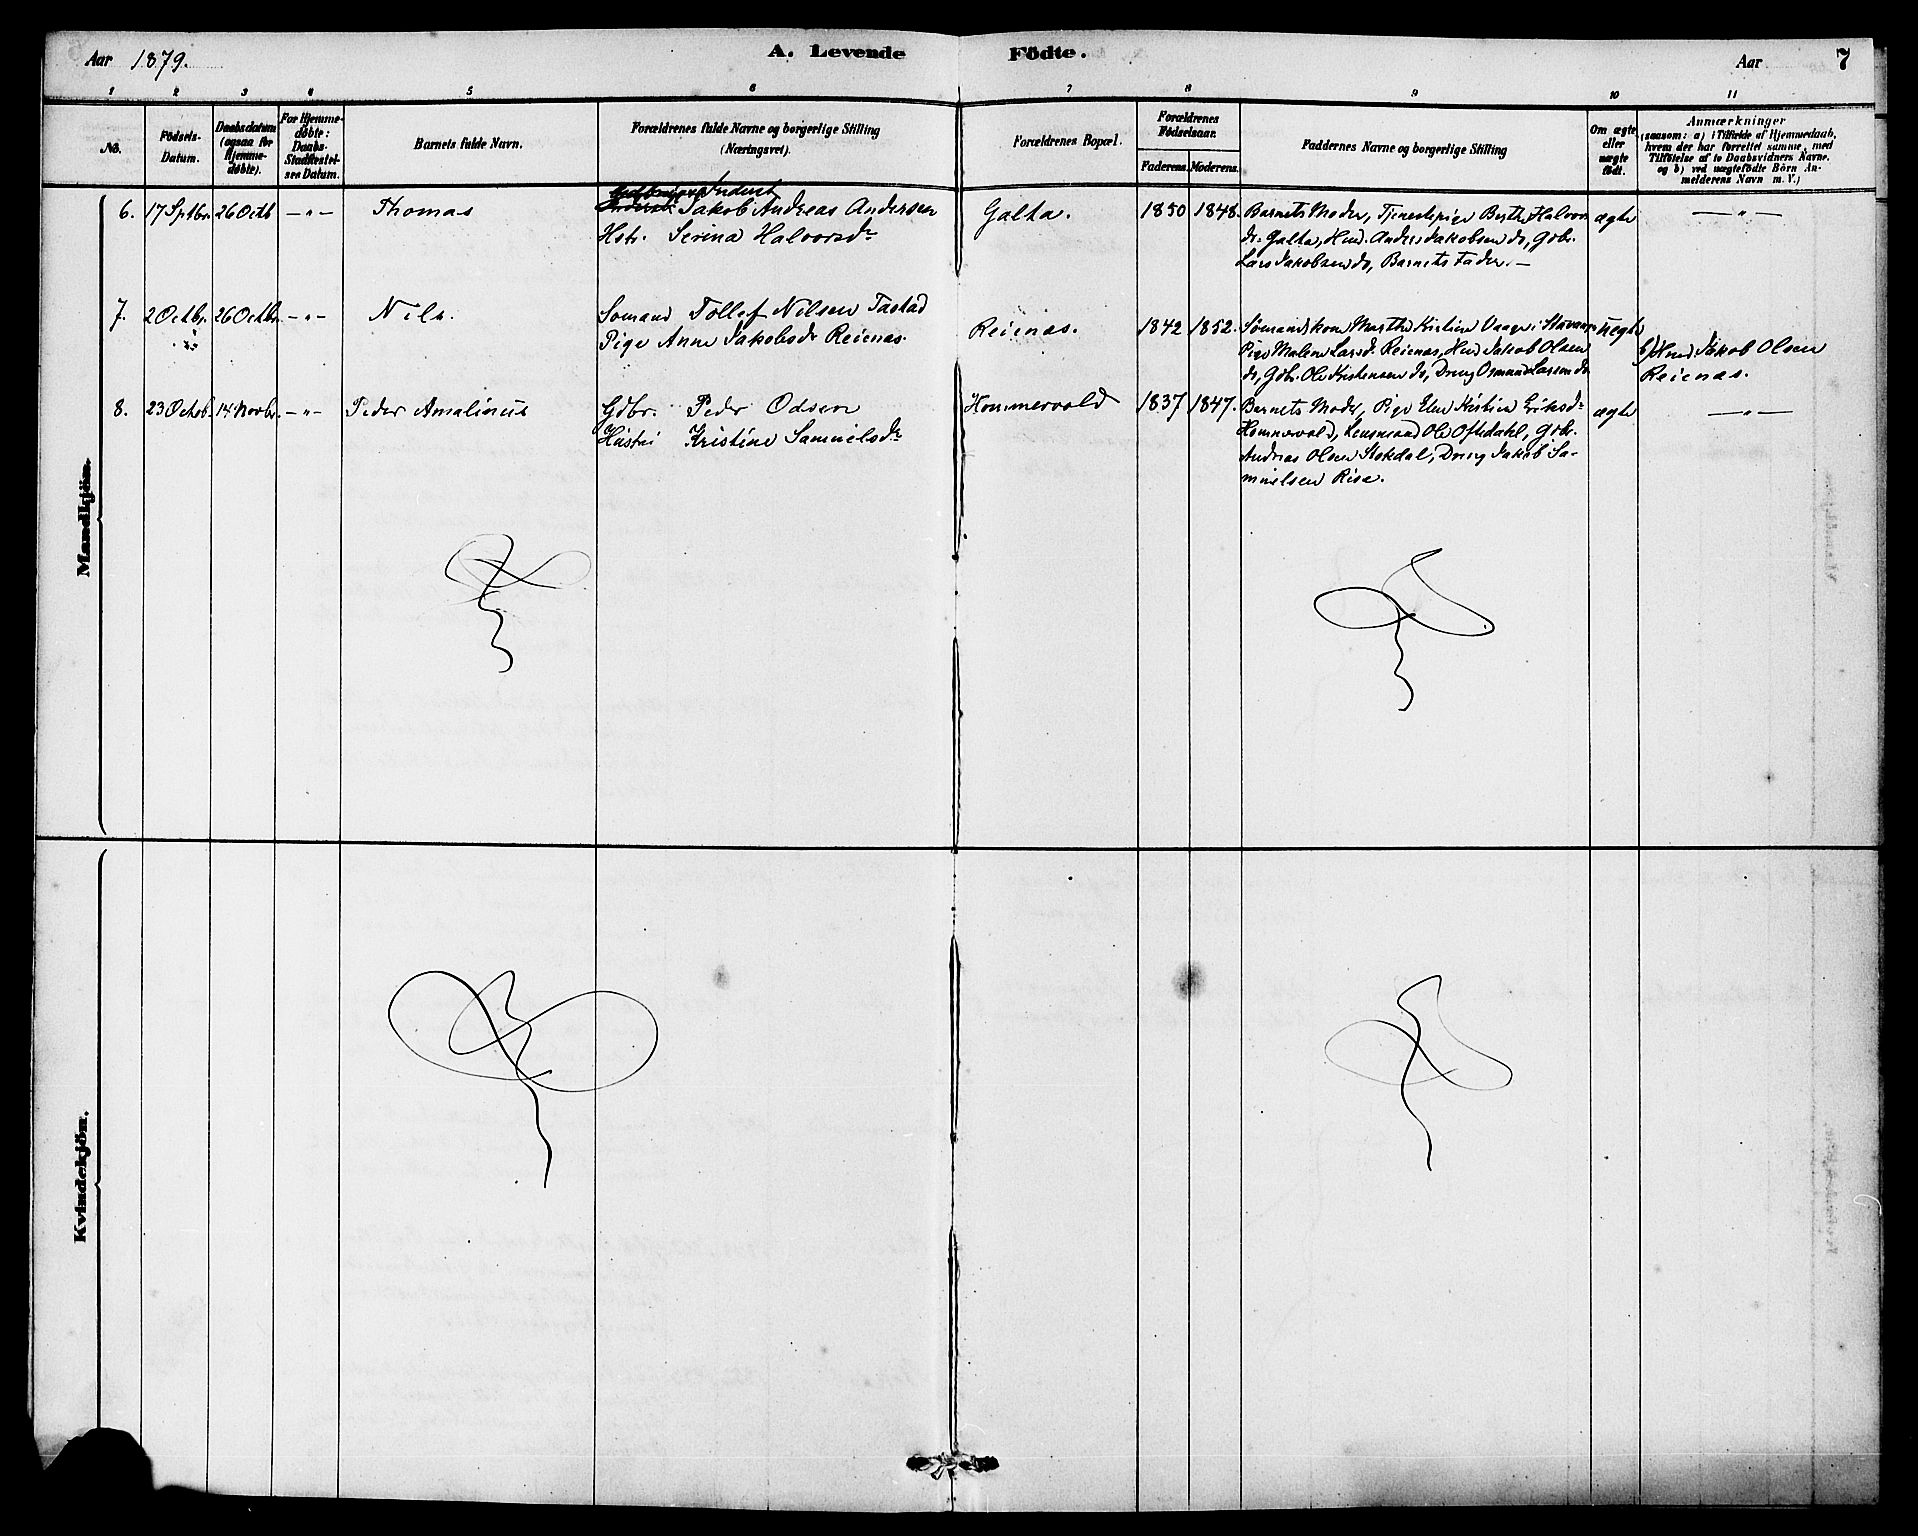 Aar 1879.
A. Levende Födte.
Aar
7
1 2 3 4 5 6 7 8 9 10 11
No.
Födsels-
Datum.
Daabsdatum
(ogsaa for
Hjemme-
døbte).
For Hjemme-
døbte:
Daabs-
Stadfæstel-
ses Datum.
Barnets fulde Navn.
Forældrenes fulde Navne og borgerlige Stilling
(Næringsvei).
Forældrenes Bopæl.
Forældrenes
Fødselsaar.
Faderens. Moderens.
Faddernes Navne og borgerlige Stilling
Om ægte
eller
uægte
født.
Anmærkninger
(saasom: a) i Tilfælde af Hjemmedaab,
hvem der har forrettet samme, med
Tilføielse af to Daabsvidners Navne.
og b) ved uægtefødte Börn An-
melderens Navn m. V.)
Mandkjön.
6. 17 Septbr. 26 Octb — " — Thomas
Jakob Andreas Andersen
Hstr. Serina Halvorsdr
Galta.
1850 1848.
Barnets Moder, Tjenestepige Berthe Halvors
dr. Galta, Hmd. Anders Jakobsen do, Gdbr.
Lars Jakobsen do, Barnets Fader. —
ægte
— " —
7. 2 Octbr. 26 Octbr. — " — Nils.
Sømand Tollef Nilsen Tastad
Pige Anne Jakobsdr Reienæs.
Reienæs.
1842 1852.
Sømandskone Marthe Kistine Vaage i Stavanger
Pige Malene Larsdr Reienæs, Hmd Jakob Olsen
do, Gdbr. Ole Kristensen do, Dreng Osmund Larsen do
uægte
b) Hmd Jakob Olsen
Reienæs.
8. 23 Octob. 14 Novbr. — " — Peder Amalinus
Gdbr. Peder Odsen
Hustru Kristine Samuelsdr
Hommervold
1837 1847.
Barnets Moder, Pige Elen Kristine Eriksdr
Hommervold, Lensmand Ole Oftedahl, Gdbr.
Andreas Olsen Stokdal, Dreng Jakob Sa-
muelsen Risa.
ægte
— " —
Kvindekjön.